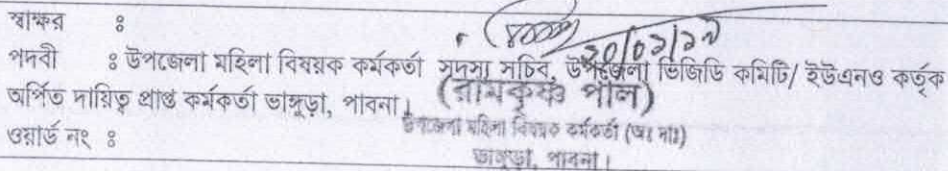 স্বাক্ষর ঃ
২০/০২/১৯
পদবী ঃ উপজেলা মহিলা বিষয়ক কর্মকর্তা সদস্য সচিব, উপজেলা ভিজিডি কমিটি/ ইউএনও কর্তৃক
অর্পিত দায়িত্ব প্রাপ্ত কর্মকর্তা ভাঙ্গুড়া, পাবনা।
(রামকৃষ্ণ পাল)
উপজেলা মহিলা বিষয়ক কর্মকর্তা (অঃ দাঃ)
ওয়ার্ড নং ঃ
ভাঙ্গুড়া, পাবনা।